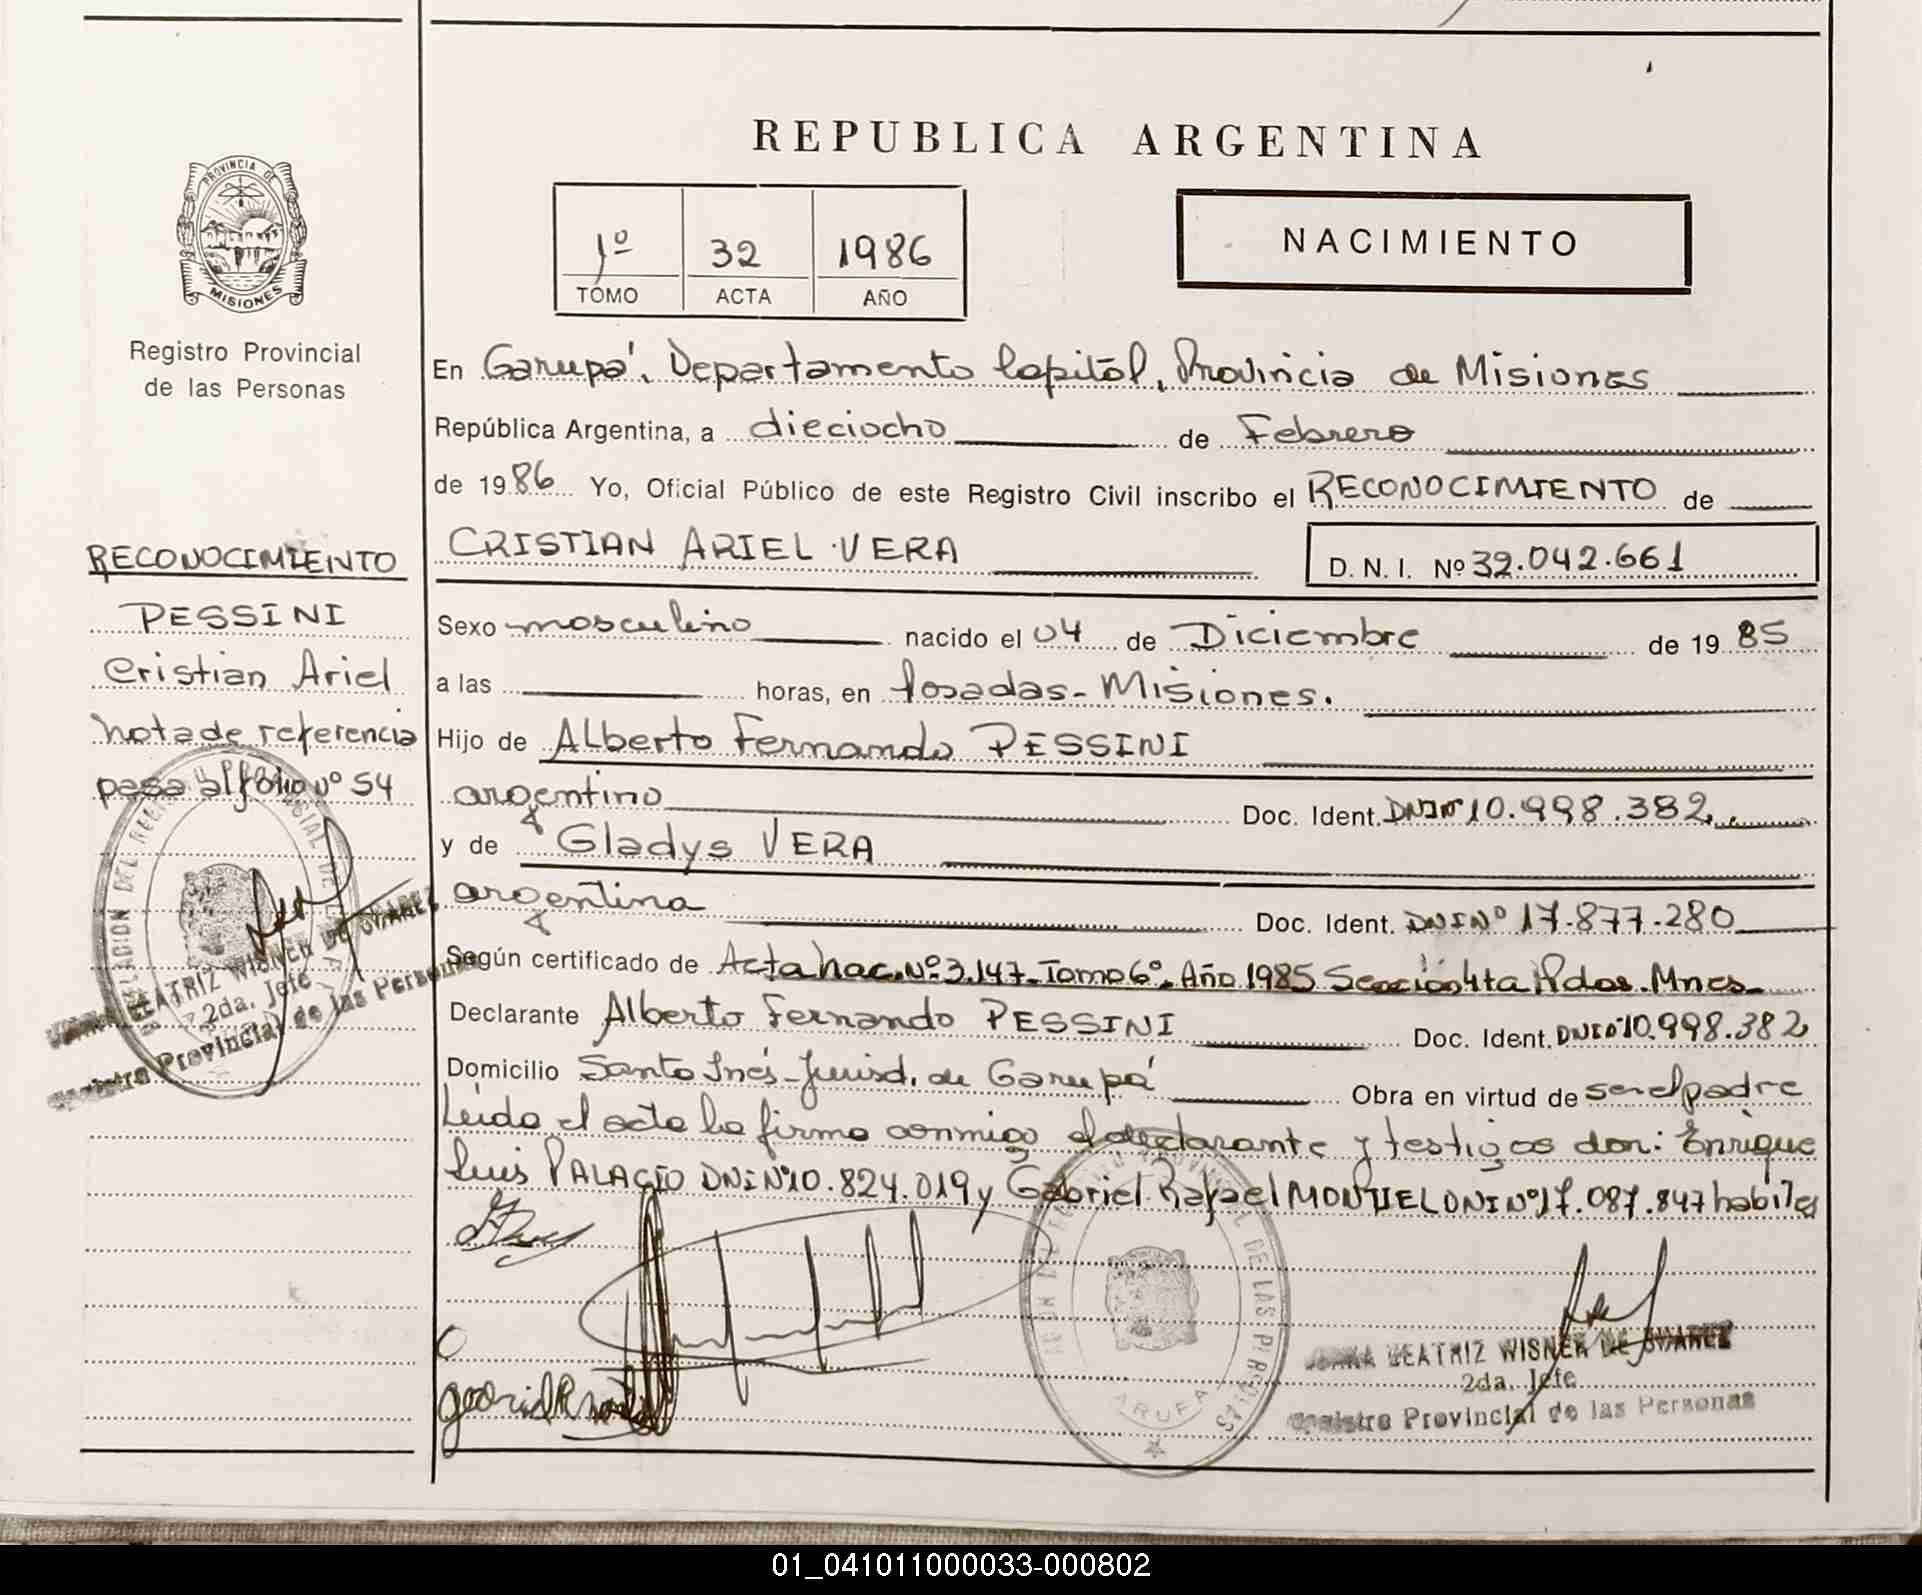 REPUBLICA ARGENTINA
PROVINCIA DE
MISIONES
1º 32 1986
TOMO ACTA AÑO
NACIMIENTO
Registro Provincial
de las Personas
En Garupá, Departamento Capital, Provincia de Misiones
República Argentina, a dieciocho de Febrero
de 1986 Yo, Oficial Público de este Registro Civil inscribo el RECONOCIMIENTO de
CRISTIAN ARIEL VERA D. N. I. Nº 32.042.661
Sexo masculino nacido el 04 de Diciembre de 1985
a las horas, en Posadas - Misiones.
Hijo de Alberto Fernando PESSINI
argentino Doc. Ident. DNI Nº 10.998.382
y de Gladys VERA
argentina Doc. Ident. DNI Nº 17.877.280
Según certificado de Acta Nac. Nº 3.147 - Tomo 6º - Año 1985 Sección 4ta Pdas. Mnes
Declarante Alberto Fernando PESSINI Doc. Ident. DNI Nº 10.998.382
Domicilio Santa Inés - Jurisd. de Garupá Obra en virtud de ser el padre
Leída el acta la firma conmigo el declarante y testigos don: Enrique
Luis PALACIO DNI Nº 10.824.019 y Gabriel Rafael MONTIEL DNI Nº 17.087.847 hábiles
BEATRIZ WISNER DE SUAREZ
2da. Jefe
Registro Provincial de las Personas
RECONOCIMIENTO
PESSINI
Cristian Ariel
nota de referencia
pasa al folio Nº 54
BEATRIZ WISNER DE SUAREZ
2da. Jefe
Registro Provincial de las Personas
01_041011000033-000802